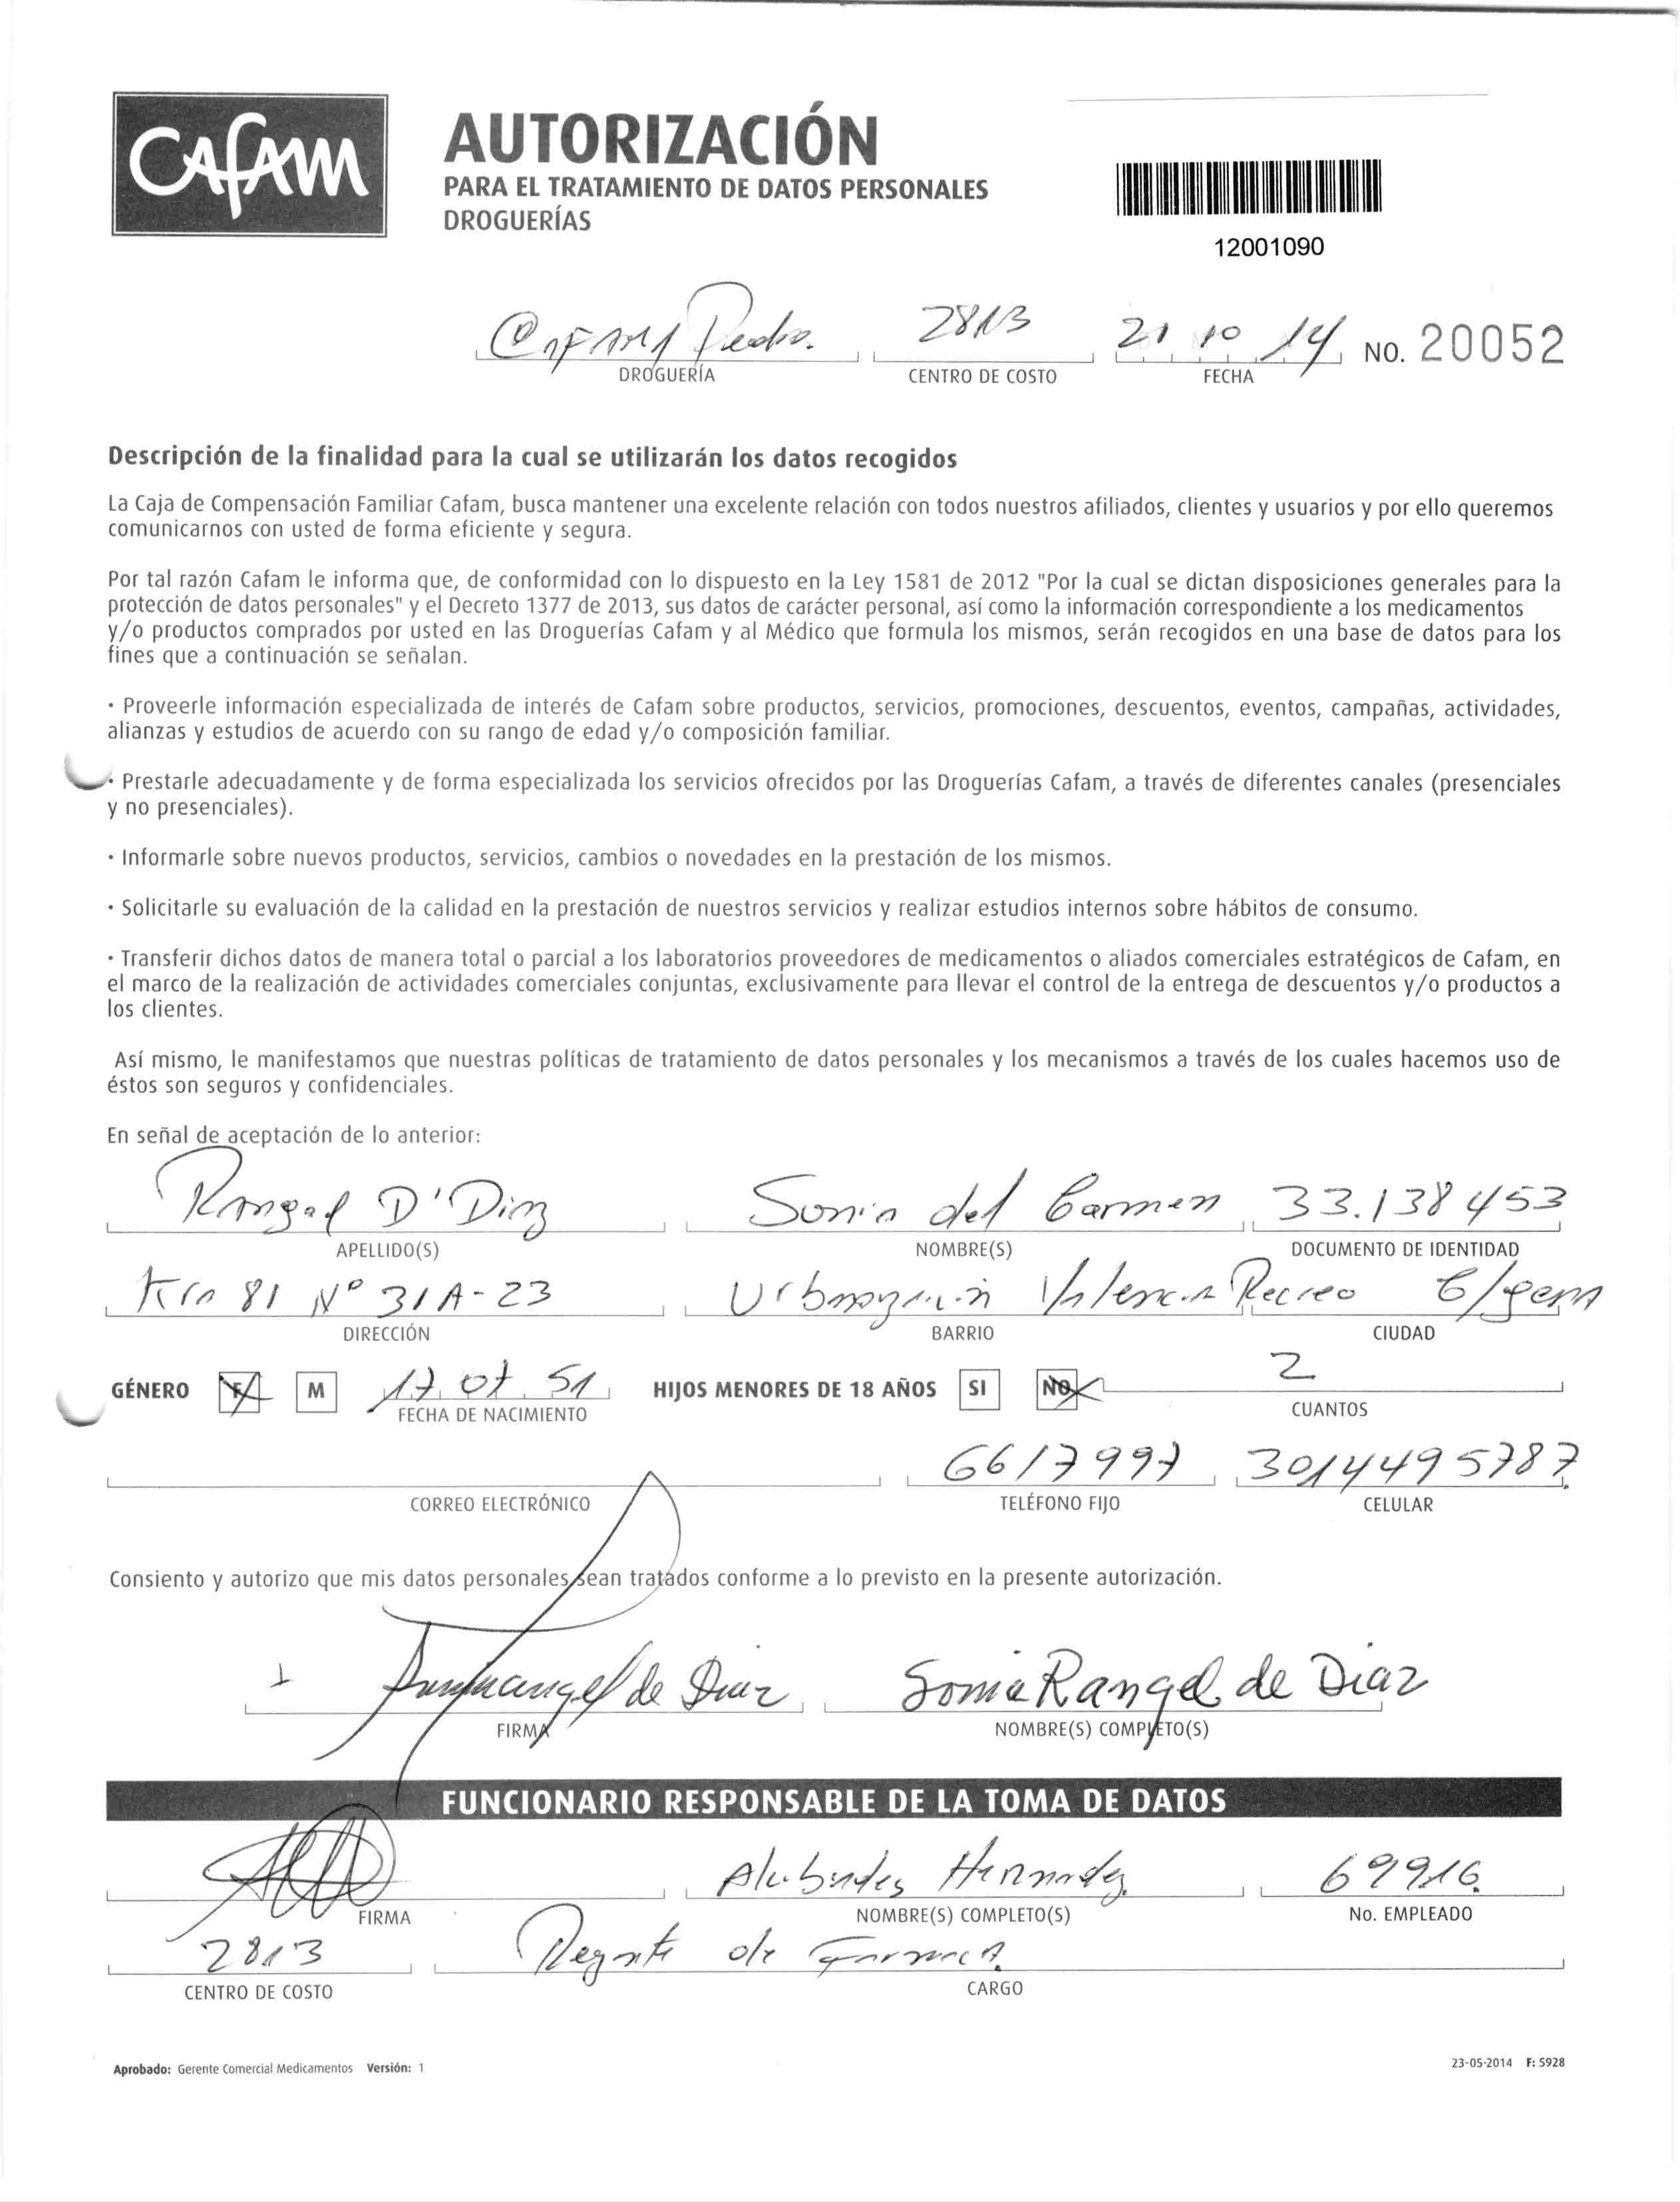 CAFAM
AUTORIZACIÓN
PARA EL TRATAMIENTO DE DATOS PERSONALES
DROGUERÍAS
12001090
2813 21 10 14 NO. 20052
DROGUERÍA CENTRO DE COSTO FECHA
Descripción de la finalidad para la cual se utilizarán los datos recogidos
La Caja de Compensación Familiar Cafam, busca mantener una excelente relación con todos nuestros afiliados, clientes y usuarios y por ello queremos
comunicarnos con usted de forma eficiente y segura.
Por tal razón Cafam le informa que, de conformidad con lo dispuesto en la Ley 1581 de 2012 "Por la cual se dictan disposiciones generales para la
protección de datos personales" y el Decreto 1377 de 2013, sus datos de carácter personal, así como la información correspondiente a los medicamentos
y/o productos comprados por usted en las Droguerías Cafam y al Médico que formula los mismos, serán recogidos en una base de datos para los
fines que a continuación se señalan.
· Proveerle información especializada de interés de Cafam sobre productos, servicios, promociones, descuentos, eventos, campañas, actividades,
alianzas y estudios de acuerdo con su rango de edad y/o composición familiar.
· Prestarle adecuadamente y de forma especializada los servicios ofrecidos por las Droguerías Cafam, a través de diferentes canales (presenciales
y no presenciales).
· Informarle sobre nuevos productos, servicios, cambios o novedades en la prestación de los mismos.
· Solicitarle su evaluación de la calidad en la prestación de nuestros servicios y realizar estudios internos sobre hábitos de consumo.
· Transferir dichos datos de manera total o parcial a los laboratorios proveedores de medicamentos o aliados comerciales estratégicos de Cafam, en
el marco de la realización de actividades comerciales conjuntas, exclusivamente para llevar el control de la entrega de descuentos y/o productos a
los clientes.
Así mismo, le manifestamos que nuestras políticas de tratamiento de datos personales y los mecanismos a través de los cuales hacemos uso de
éstos son seguros y confidenciales.
En señal de aceptación de lo anterior:
Rangel D' Diaz Sonia del Carmen 33.138453
APELLIDO(S) NOMBRE(S) DOCUMENTO DE IDENTIDAD
Kra 81 Nº 31A-23 Urbanizacion Recreo C/gena
DIRECCIÓN BARRIO CIUDAD
GÉNERO F M 17 07 51 HIJOS MENORES DE 18 AÑOS SI NO 2
FECHA DE NACIMIENTO CUANTOS
6617997 3014495787
CORREO ELECTRÓNICO TELÉFONO FIJO CELULAR
Consiento y autorizo que mis datos personales sean tratados conforme a lo previsto en la presente autorización.
Rangel de Diaz Sonia Rangel de Diaz
FIRMA NOMBRE(S) COMPLETO(S)
FUNCIONARIO RESPONSABLE DE LA TOMA DE DATOS
69916
FIRMA NOMBRE(S) COMPLETO(S) No. EMPLEADO
2813 Regente de Farmacia
CENTRO DE COSTO CARGO
Aprobado: Gerente Comercial Medicamentos Versión: 1 23-05-2014 F: 5928